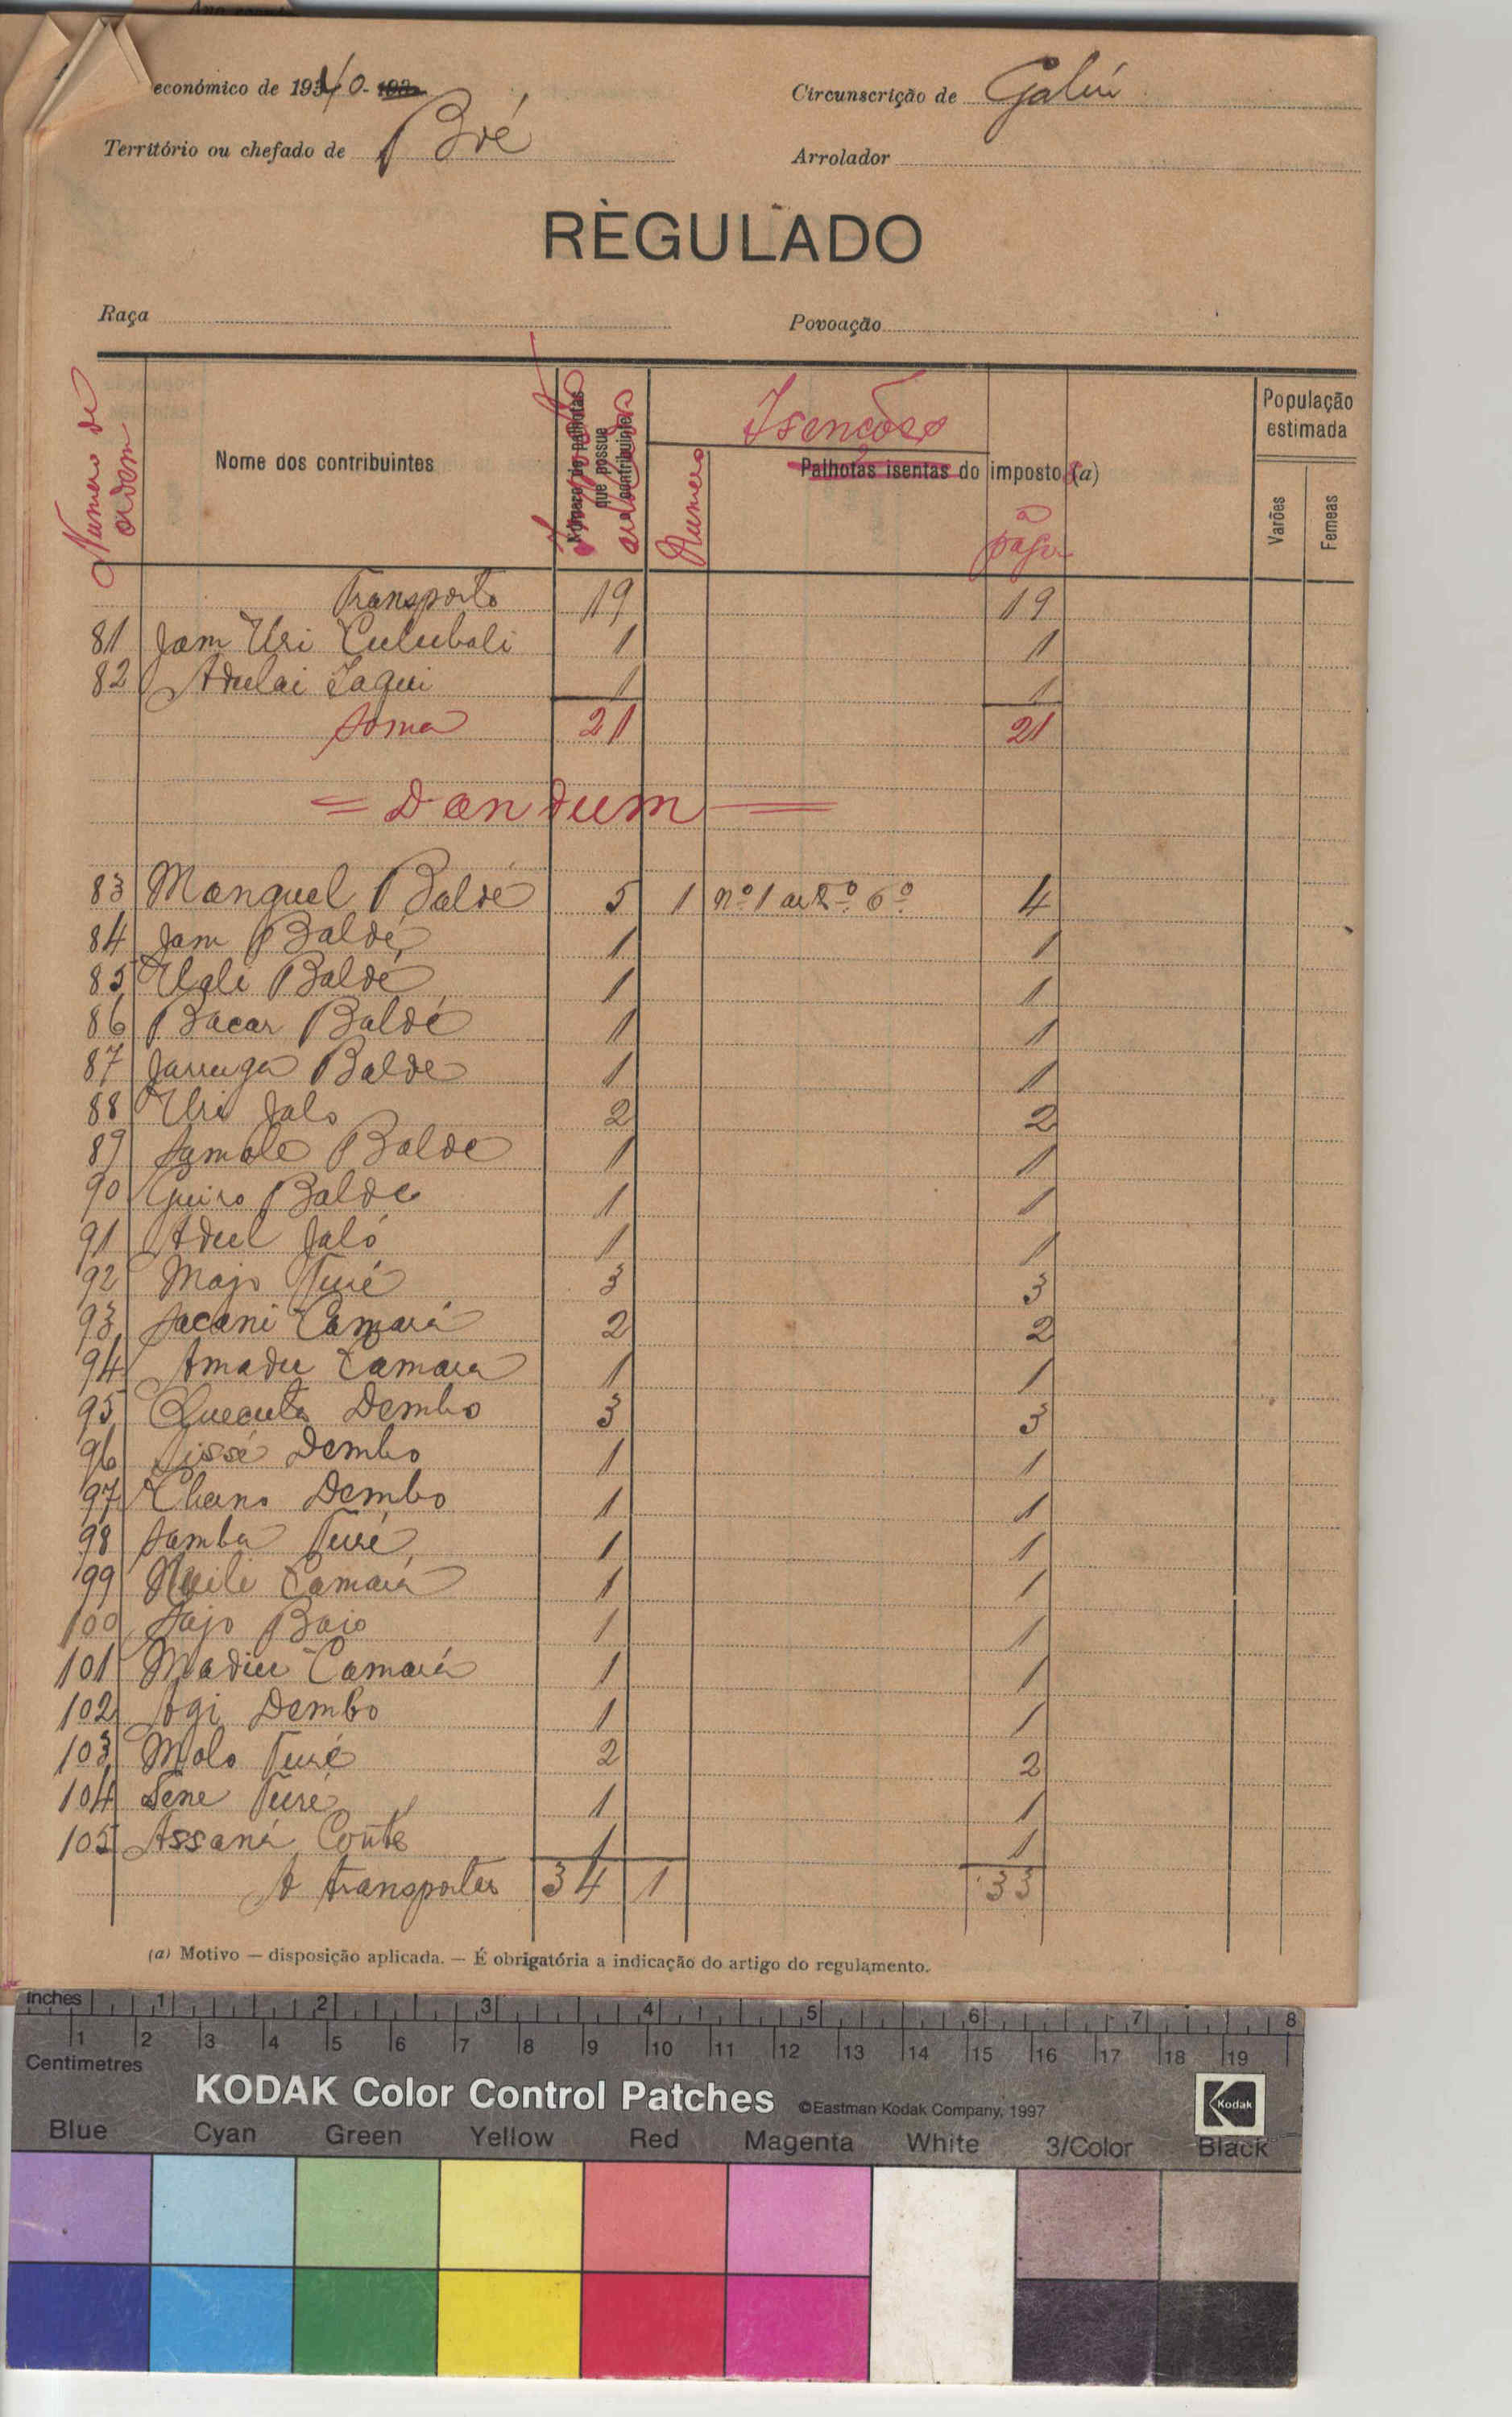 económico de 1940-
Circunscrição de Gabú
Território ou chefado de Boé
Arrolador
RÈGULADO
Raça
Povoação
Numero de ordem
Nome dos contribuintes
Número de palhotas que possue o contribuinte
Isenções
Numero
Palhotas isentas do imposto (a)
a pagar
População estimada
Varões
Femeas
Transporte 19 19
81 Jam Uri Culubali 1 1
82 Adulai Jaqui 1 1
Soma 21 21
= Dandum =
83 Manguel Baldé 5 1 nº 1 artº. 6º. 4
84 Jam Baldé 1 1
85 Uale Baldé 1 1
86 Bacar Baldé 1 1
87 Balde 1 1
88 Uri Jalo 2 2
89 Samble Balde 1 1
90 Queiro Balde 1 1
91 Adul Jaló 1 1
92 Majo Turé 3 3
93 Sacani Camará 2 2
94 Amadu Camara 1 1
95 Quecuta Dembo 3 3
96 Sissé Dembo 1 1
97 Dembo 1 1
98 Samba Turé 1 1
99 Camará 1 1
100 Sajo Baio 1 1
101 Madiu Camará 1 1
102 Sogi Dembo 1 1
103 Molo Turé 2 2
104 Sene Turé 1 1
105 Assaná Conté 1 1
A transportar 34 1 33
(a) Motivo — disposição aplicada. — É obrigatória a indicação do artigo do regulamento.
inches 1 2 3 4 5 6 7 8
1 2 3 4 5 6 7 8 9 10 11 12 13 14 15 16 17 18 19
Centimetres
KODAK Color Control Patches ©Eastman Kodak Company, 1997 Kodak
Blue Cyan Green Yellow Red Magenta White 3/Color Black